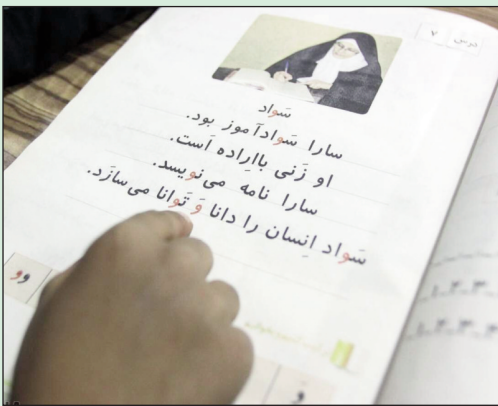 درس ۷
سَواد
سارا سَوادآموز بود.
او زَنی بااِراده اَست.
سارا نامه می‌نویسد.
سَواد اِنسان را دانا وَ تَوانا می‌سازَد.
و و